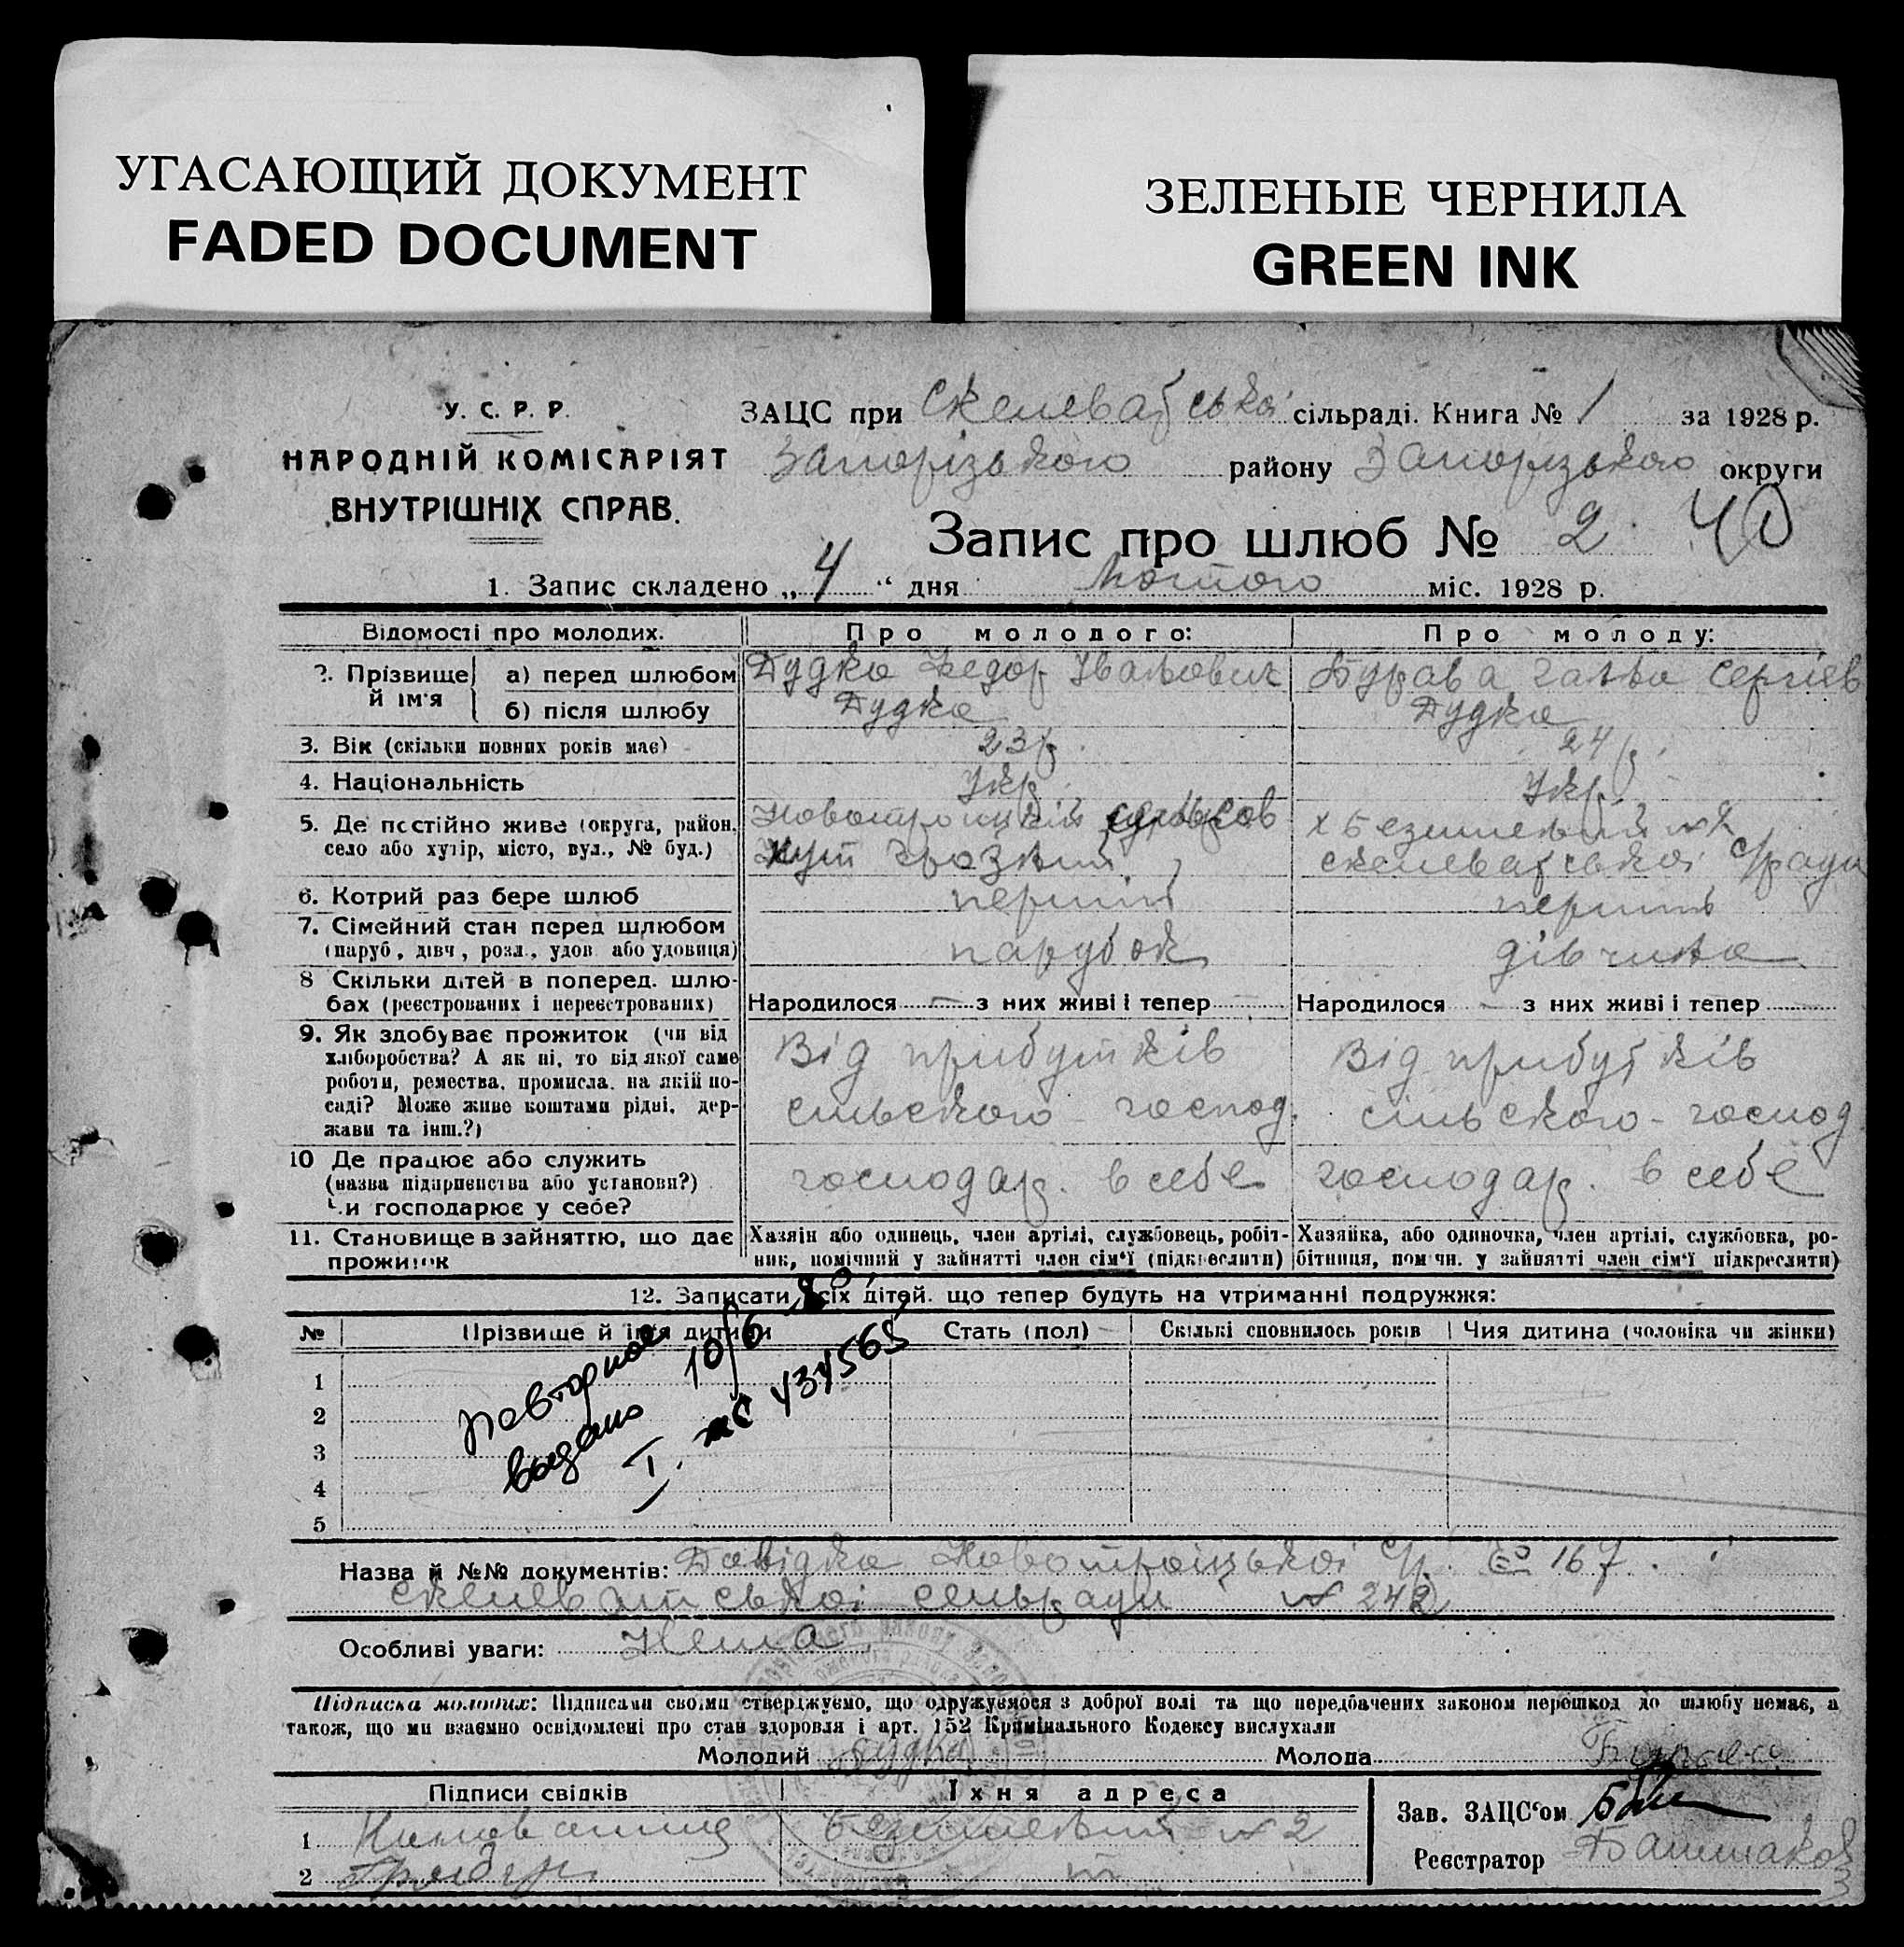 УГАСАЮЩИЙ ДОКУМЕНТ
FADED DOCUMENT
ЗЕЛЕНЫЕ ЧЕРНИЛА
GREEN INK
У. С. Р. Р.
НАРОДНІЙ КОМІСАРІЯТ
ВНУТРІШНІХ СПРАВ.
ЗАЦС при Скелеватської сільраді. Книга № 1 за 1928 р.
Запорізького району Запорізького округи
Запис про шлюб № 2 40
1. Запис складено „4“ дня Лютого міс. 1928 р.
Відомості про молодих. Про молодого: Про молоду:
2. Прізвище й ім'я
а) перед шлюбом Дудка Федор Іванович Бурава Галя Сергіев
б) після шлюбу Дудка Дудка
3. Вік (скільки повних років має) 23 р. 24 р.
4. Національність Укр. Укр.
5. Де постійно живе (округа, район, Новотроицкий х Безимений №2
село або хутір, місто, вул., № буд.) Хут Грозний Скелеватської с/ради
6. Котрий раз бере шлюб перший перший
7. Сімейний стан перед шлюбом
(паруб., дівч., розл., удов. або удовиця) парубок дівчина
8 Скільки дітей в поперед. шлю-
бах (реєстрованих і нереєстрованих) Народилося — з них живі і тепер Народилося — з них живі і тепер
9. Як здобуває прожиток (чи від Від прибутків Від прибутків
хліборобства? А як ні, то від якої саме
роботи, ремества, промисла, на якій по- сільского господ. сільского-господ
саді? Може живе коштами рідні, дер-
жави та інш.?)
10 Де працює або служить
(назва підприємства або установи?) господар. в себе господар. в себе
Чи господарює у себе?
11. Становище в зайняттю, що дає Хазяїн або одинець, член артілі, службовець, робіт- Хазяйка, або одиночка, член артілі, службовка, ро-
прожиток ник, помічний у зайнятті член сім'ї (підкреслити) бітниця, помічн. у зайнятті член сім'ї підкреслити)
12. Записати всіх дітей, що тепер будуть на утриманні подружжя:
№ Прізвище й ім'я дитини Стать (пол) Скількі сповнилось років Чия дитина (чоловіка чи жінки)
1
2
3
4
5
Повторное
выдано 10/6
I. жс 434565
Назва й №№ документів: Довідка Новотроіцької С/р. № 167.
Скелеватської сельради № 242
Особливі уваги: Нема
Підписка молодих: Підписами своїми стверджуємо, що одружуємося з доброї волі та що передбачених законом перешкод до шлюбу немає, а
також, що ми взаємно освідомлені про стан здоровля і арт. 152 Кримінального Кодексу вислухали
Молодий Дудка Молода Бурава
Підписи свідків Їхня адреса
1 Безименый № 2
2
Зав. ЗАЦС'ом
Реєстратор Башмаков